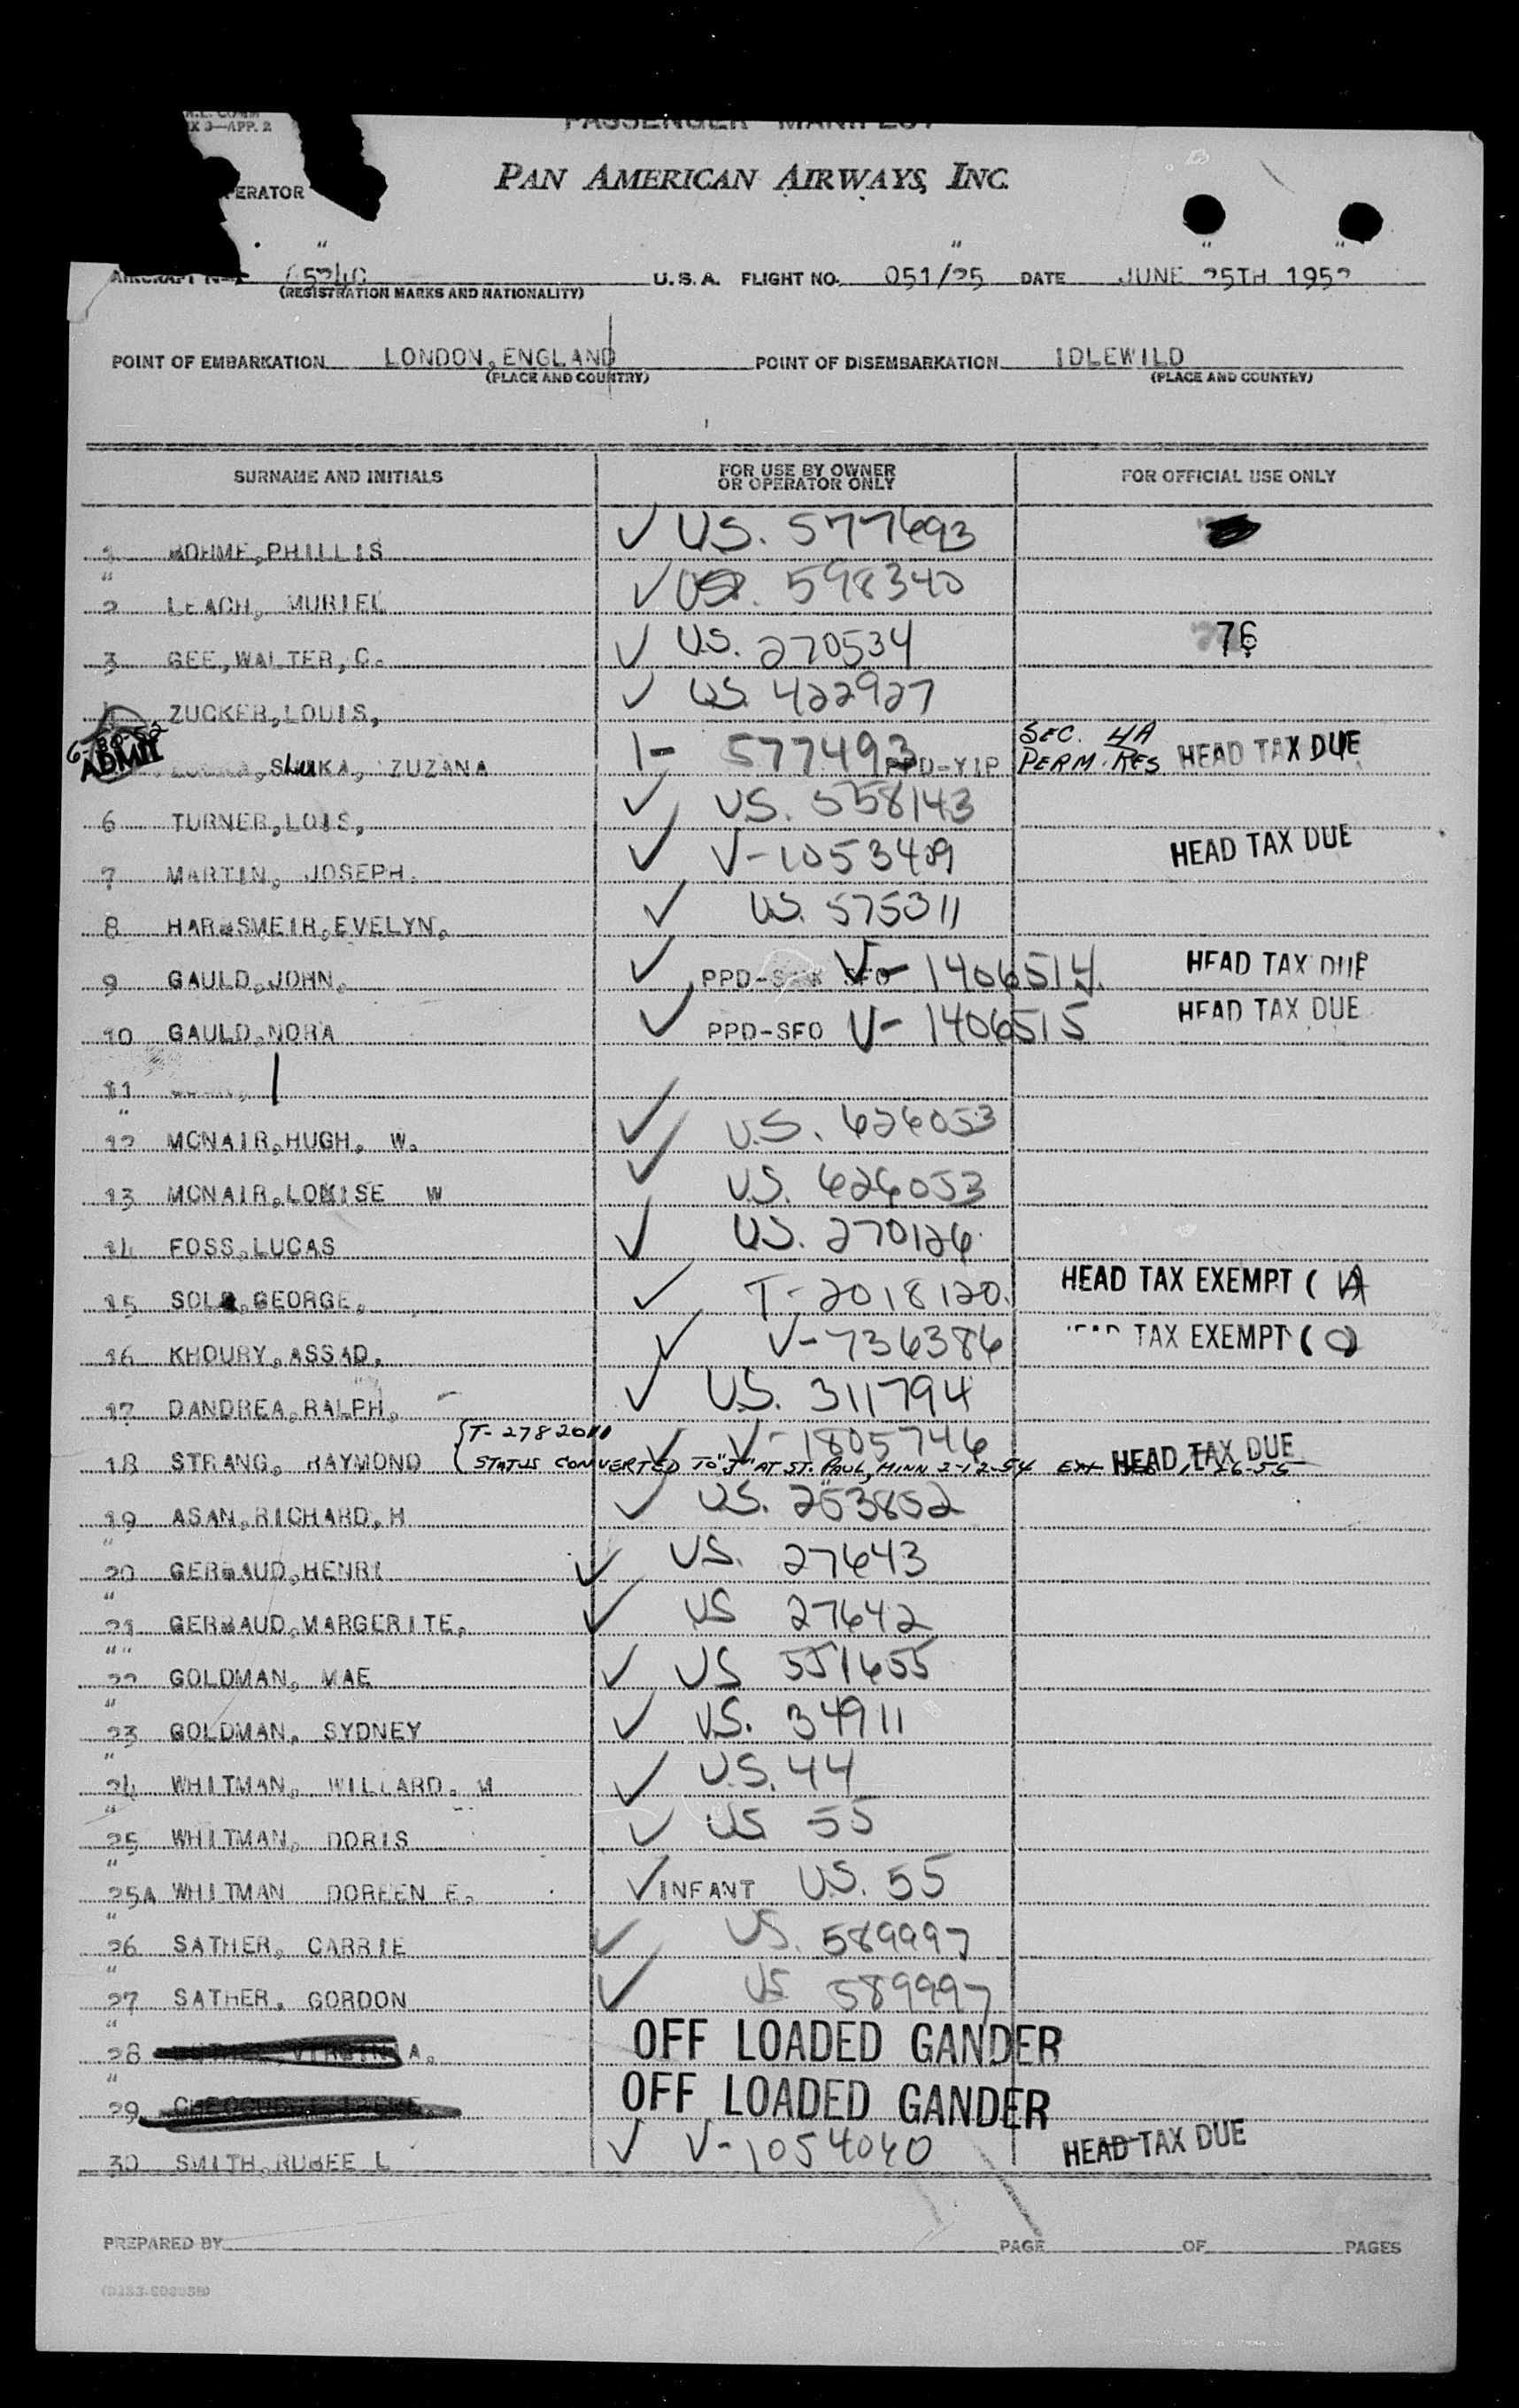 X 3—APP. 2
PASSENGER MANIFEST
PAN AMERICAN AIRWAYS, INC.
PERATOR
" " " "
AIRCRAFT U.S.A. FLIGHT NO. 051/25 DATE JUNE 25TH 1952
(REGISTRATION MARKS AND NATIONALITY)
POINT OF EMBARKATION LONDON, ENGLAND POINT OF DISEMBARKATION IDLEWILD
(PLACE AND COUNTRY) (PLACE AND COUNTRY)
SURNAME AND INITIALS FOR USE BY OWNER OR OPERATOR ONLY FOR OFFICIAL USE ONLY
1 BOHME, PHILLIS ✓ U.S. 577693
" 2 LEACH, MURIEL ✓ U.S. 598340
3 GEE, WALTER, C. ✓ U.S. 270534 76
ZUCKER, LOUIS, ✓ U.S. 422927
6-30-52 ADMIT SLUKA, ZUZANA 1- 577493 PPD-YIP SEC. 4A PERM. RES HEAD TAX DUE
6 TURNER, LOIS, ✓ U.S. 558143
7 MARTIN, JOSEPH. ✓ V-1053409 HEAD TAX DUE
8 EVELYN. ✓ U.S. 575311
9 GAULD, JOHN. ✓ PPD- SFO V-1406514 HEAD TAX DUE
10 GAULD, NORA ✓ PPD-SFO V-1406515 HEAD TAX DUE
11
" 12 MCNAIR, HUGH, W. ✓ U.S. 626053
13 MCNAIR, LOUISE W ✓ U.S. 626053
14 FOSS, LUCAS ✓ U.S. 270126
15 GEORGE, ✓ T-2018120 HEAD TAX EXEMPT ( A
16 KHOURY, ASSAD, ✓ V-736386 TAX EXEMPT ( O )
17 DANDREA, RALPH, ✓ U.S. 311794
18 STRANG, RAYMOND ✓ V-1805746 HEAD TAX DUE
{T-2782011
STATUS CONVERTED TO "J" AT ST. PAUL, MINN 2-12-54 EXT
19 ASAN, RICHARD, H ✓ U.S. 253852
" 20 HENRI ✓ U.S. 27643
" 21 MARGERITE, ✓ US 27642
" " 22 GOLDMAN, MAE ✓ US 551655
" 23 GOLDMAN, SYDNEY ✓ U.S. 34911
" 24 WHITMAN, WILLARD. M ✓ U.S. 44
" 25 WHITMAN, DORIS ✓ US 55
" 25A WHITMAN DOREEN E. ✓ INFANT U.S. 55
" 26 SATHER, CARRIE ✓ U.S. 589997
" 27 SATHER, GORDON ✓ US 589997
" 28 VIRGINIA. OFF LOADED GANDER
" 29 OFF LOADED GANDER
30 SMITH, RUBEE L ✓ V-1054040 HEAD TAX DUE
PREPARED BY PAGE OF PAGES